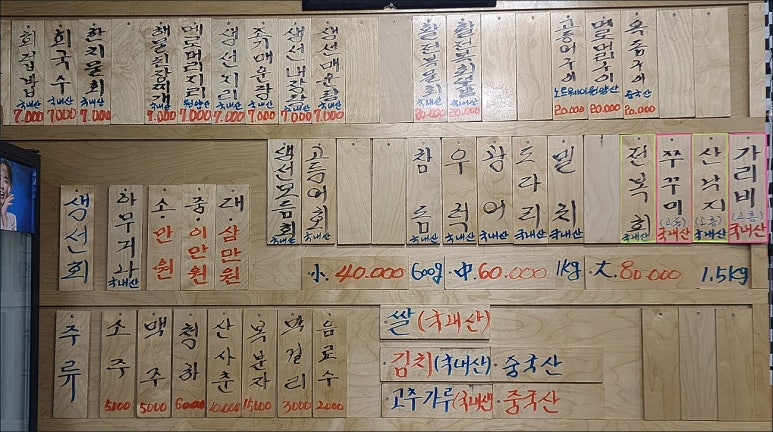 회덮밥 국내산 7.000
회국수 국내산 7000
한치물회 국내산 7.000
해물된장찌개 국내산 7.000
멜도머리지리 원양산 7.000
생선지리 국내산 7.000
조기매운탕 국내산 7.000
생선내장탕 국내산 7.000
생선매운탕 국내산 7.000
활전복물회 국내산 20.000
활전복회덮밥 국내산 20.000
고등어구이 노르웨이 20.000
머리구이 원양산 20.000
옥돔구이 중국산 20.000
생선회
하무거나 국내산
소·만원
중·이만원
대·삼만원
생선모듬회 국내산
고등어회 국내산
참돔 국내산
우럭 국내산
광어 국내산
도다리 국내산
멸치 국내산
전복회 국내산
쭈꾸미 (고흥) 국내산
산낙지 (고흥) 국내산
가리비 (고흥) 국내산
·小. 40.000 600g ·中. 60.000 1kg ·大. 80.000 1.5kg
주류
소주 5000
맥주 5000
청하 6000
산사춘 10.000
복분자 15.000
막걸리 3000
음료수 2000
·쌀 (국내산)
·김치 (국내산)·중국산
·고추가루 (국내산) 중국산